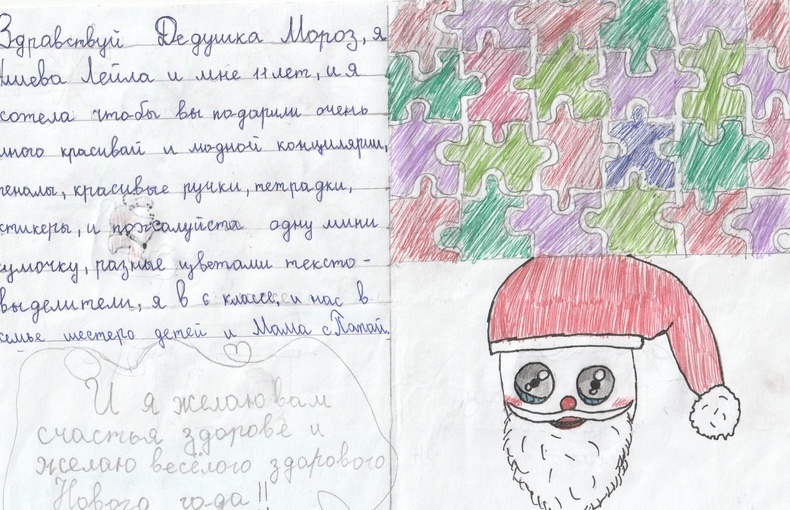 Здравствуй Дедушка Мороз, я
Алиева Лейла и мне 11 лет, и я
хотела чтобы вы подарили очень
много красивай и модной концилярии,
пеналы, красивые ручки, тетрадки,
стикеры, и пожалуйста одну мини
сумочку, разные цветами тексто-
выделители, я в 6 классе, и нас в
семье шестеро детей и Мама с Папай.
И я желаю вам
счастья здорове и
желаю весёлого здорового
Нового года!!